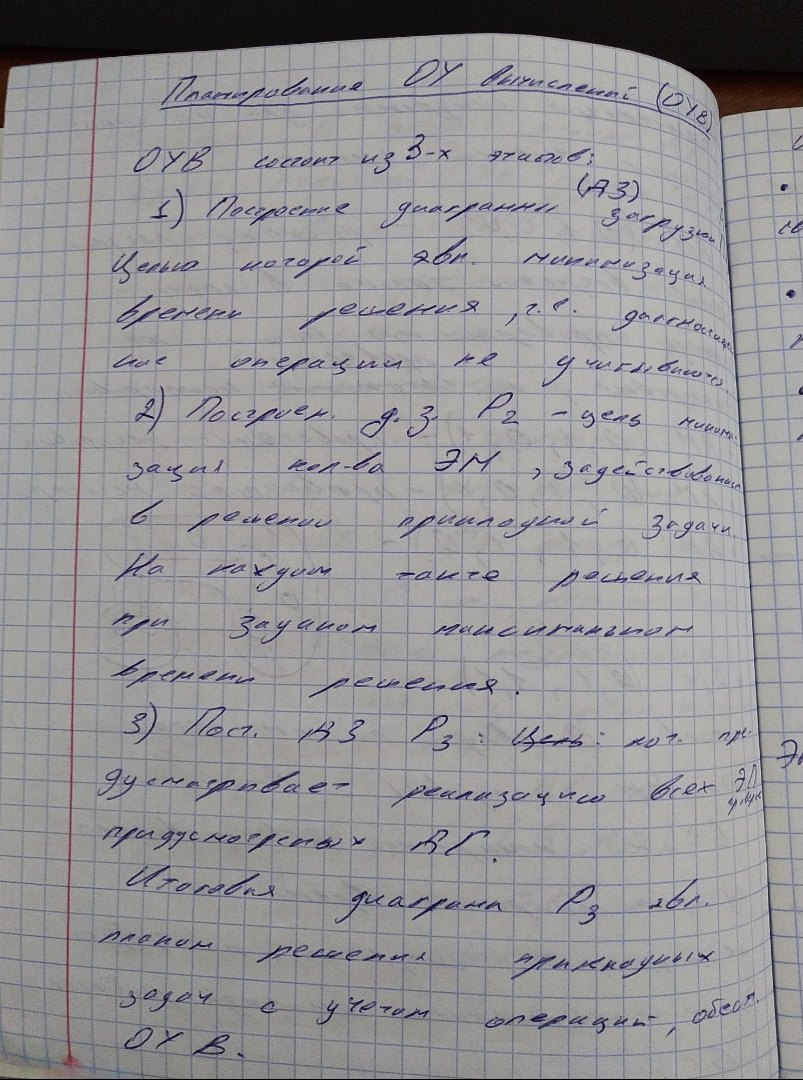 Планирование ОУ вычислений (ОУВ)
ОУВ состоит из 3-х этапов:
1) Построение диаграммы загрузки (ДЗ)
Целью которой явл. минимизация
времени решения, т.е. диагностичес
кие операции не учитываются.
2) Построен. д.з. P2 - цель миними-
зация кол-ва ЭМ, задействованных
в решении прикладной задачи.
На каждом такте решения
при заданом максимальном
времени решения.
3) Пост. ДЗ P3: Цель: кот. пре-
дусматривает реализацию всех ЭП
придусмотреных ДГ.
Итоговая диаграма P3 явл.
планом решения прикладных
задач с учетом операций, обесп.
ОУВ.